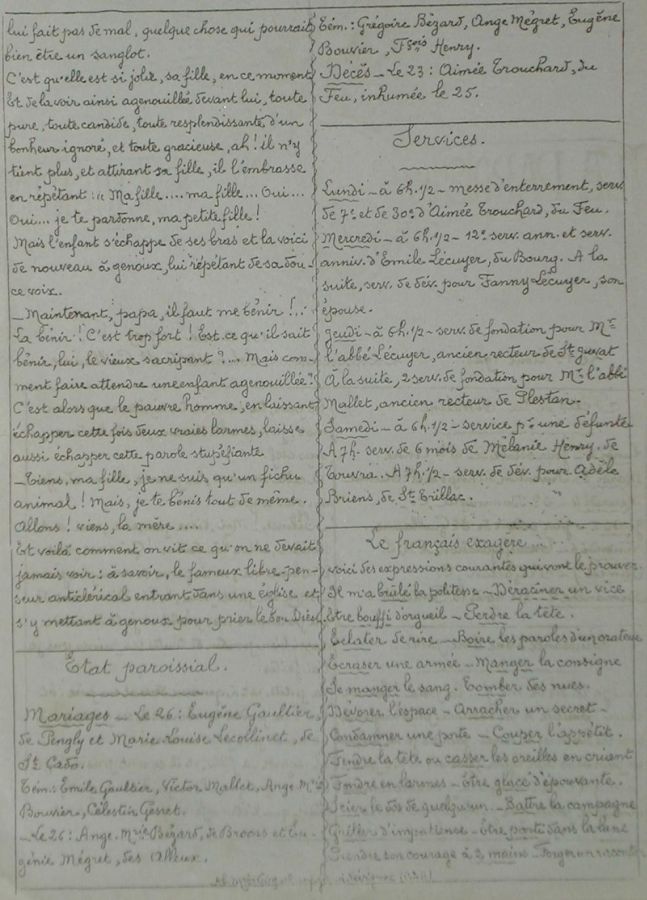 lui fait pas de mal, quelque chose qui pourrait
bien être un sanglot.
C'est qu'elle est si jolie, sa fille, en ce moment
Et de la voir ainsi agenouillée devant lui, toute
pure, toute candide, toute resplendissante d'un
bonheur ignoré, et toute gracieuse, ah! il n'y
tient plus, et attirant sa fille, il l'embrasse
en répétant: "Ma fille.... ma fille... Oui...
Oui... je te pardonne, ma petite fille!
Mais l'enfant s'échappe de ses bras et la voici
de nouveau à genoux, lui répétant de sa dou-
ce voix.
_ Maintenant, papa, il faut me bénir!..
La bénir! C'est trop fort! Est-ce qu'il sait
bénir, lui, le vieux sacripant?... Mais com-
ment faire attendre une enfant agenouillée?
C'est alors que le pauvre homme, en laissant
échapper cette fois deux vraies larmes, laisse
aussi échapper cette parole stupéfiante
_ Tiens, ma fille, je ne suis qu'un fichu
animal! Mais, je te bénis tout de même.
Allons! viens, la mère....
Et voilà comment on vit ce qu'on ne devait
jamais voir: à savoir, le fameux libre-pen-
seur anticlérical entrant dans une église et
s'y mettant à genoux pour prier le bon Dieu
Etat paroissial.
Mariages _ Le 26: Eugène Gaultier,
de Pengly et Marie Louise Lecollinet, de
St Cado.
Tém: Emile Gaultier, Victor Mallet, Ange Mie
Bouvier, Célestin Gesret.
_ Le 26: Ange Mie Bézard, de Broons et Eu-
génie Mégret, des Alleux.
Tém.: Grégoire Bézard, Ange Mégret, Eugène
Bouvier, Fçois Henry.
Décès _ Le 23: Aimée Trouchard, du
Feu, inhumée le 25.
Services.
Lundi - à 6h.1/2 - messe d'enterrement, serv.
de 7e et de 30e d'Aimée Trouchard, du Feu.
Mercredi - à 6h.1/2 - 12e serv. ann. et serv.
anniv. d'Emile Lécuyer, du Bourg. A la
suite, serv. de dév. pour Fanny Lécuyer, son
épouse.
Jeudi - à 6h.1/2 - serv. de fondation pour Mr
l'abbé Lécuyer, ancien recteur de St
A la suite, 2 serv. de fondation pour Mr l'abbé
Mallet, ancien recteur de Plestan.
Samedi - à 6h.1/2 - service pr une défunte
A 7h. serv. de 6 mois de Mélanie Henry, de
Touvra. A 7h.1/2 - serv. de dév. pour Adèle
Briens, de St Trillac.
Le français exagère...
voici des expressions courantes qui vont le prouver
Il m'a brûlé la politesse - Déraciner un vice
Etre bouffi d'orgueil - Perdre la tête.
Eclater de rire - Boire les paroles d'un orateur
Ecraser une armée - Manger la consigne
Se manger le sang. Tomber des nues.
Dévorer l'espace - Arracher un secret -
Condamner une porte - Couper l'appétit.
Fendre la tête ou casser les oreilles en criant
Fondre en larmes - Etre glacé d'épouvante.
Scier le dos de quelqu'un - Battre la campagne
Griller d'impatience - Etre dans la lune
Prendre son courage à 2 mains -